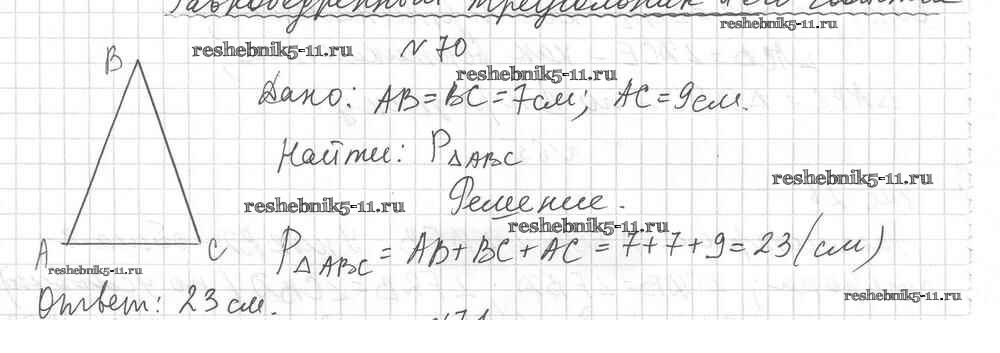 Равнобедренный треугольник и его свойства
reshebnik5-11.ru
reshebnik5-11.ru
N 70
reshebnik5-11.ru
B
Дано: AB=BC=7см; AC=9см.
Найти: P△ABC
reshebnik5-11.ru
reshebnik5-11.ru
Решение.
reshebnik5-11.ru
A
C
P△ABC = AB+BC+AC = 7+7+9=23 (см)
reshebnik5-11.ru
reshebnik5-11.ru
Ответ: 23 см.